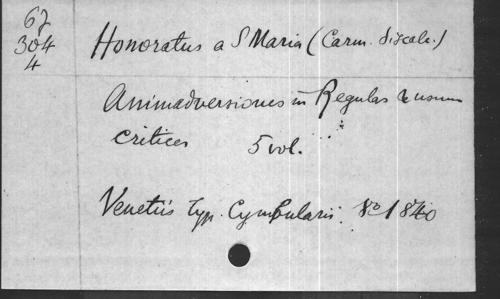 67
304
4
Honoratus a S Maria (Carm. discalc.)
Animadversiones in Regulas & usum
critices 5 vol.
Venetiis typ. Cymbularii 8º 1840